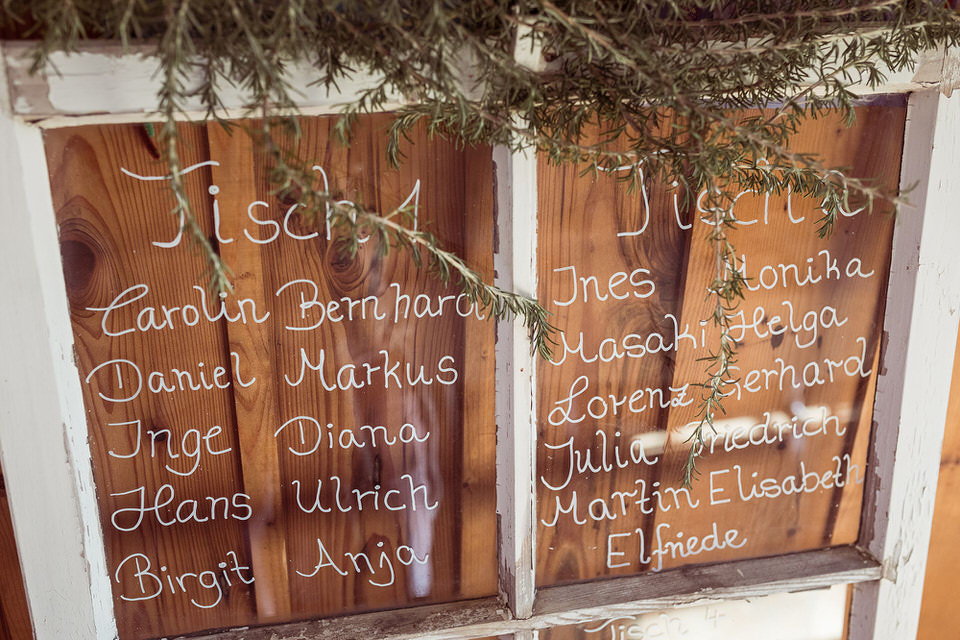 Tisch 1
Carolin Bernhard
Daniel Markus
Inge Diana
Hans Ulrich
Birgit Anja
Tisch 2
Ines Monika
Masaki Helga
Lorenz Gerhard
Julia Friedrich
Martin Elisabeth
Elfriede
Tisch 4